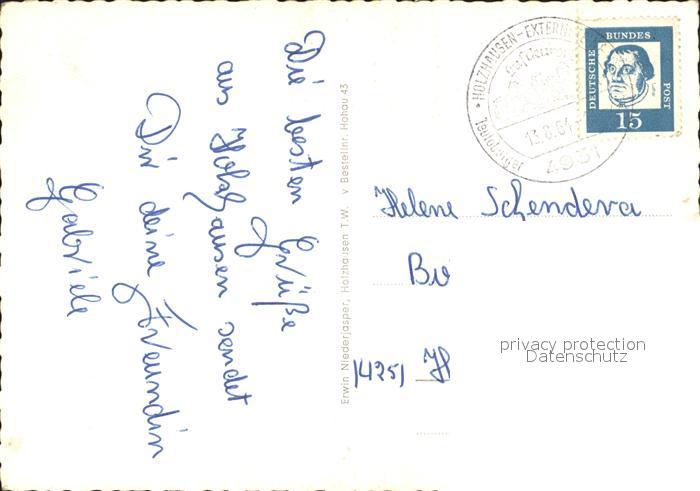 Die besten Grüße
aus Holzhausen sendet
Dir deine Freundin
Gabriele
Erwin Niederjasper, Holzhausen T.W. v Bestellnr. Hohau 43
HOLZHAUSEN-EXTERNSTEINE
13.8.64
4931
DEUTSCHE BUNDESPOST
15
Helene Schendera
privacy protection
Datenschutz